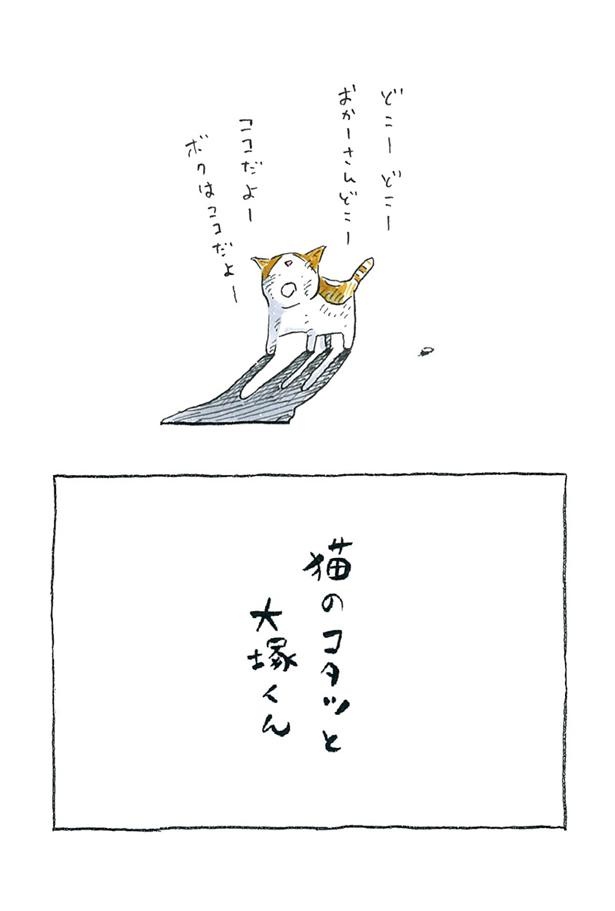 どこー どこー
おかーさんどこー
ココだよー
ボクはココだよー
猫のコタツと
大塚くん